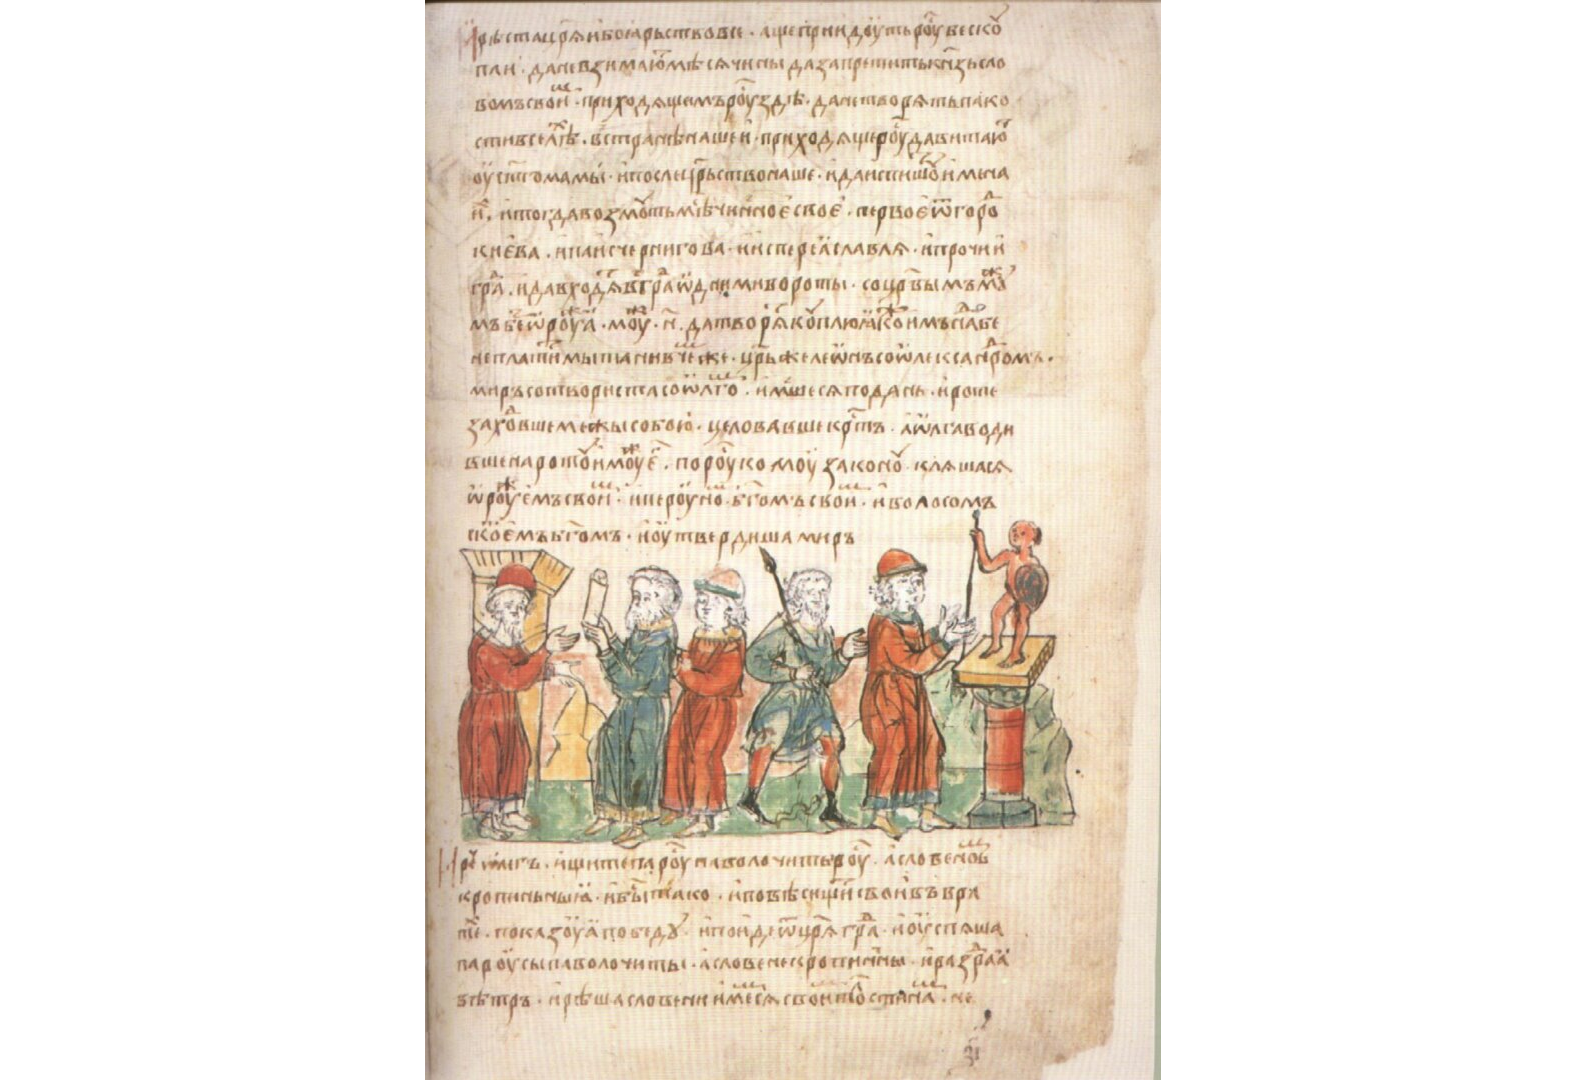 И рѣста цр҃я и боярьство все · аще приидоуть роу бес коу
пли · да не взимаю мѣсячины да запретить кнзь сло
вомъ свои · приходящемъ роу здѣ · да не творять пако
сти в селѣ · в странѣ нашей · приходяще роу да витаю
оу стго мамы · и послеть црьство наше · и да испишоу имена
и · и тогда возмоуть мѣсячиное свое · первое ѿ горо
киева · и паки с чернигова · и ис переӕславля · и прочии
гра · и да входѧ в гра ѿдинми вороты · со црвымъ моу
мъ безъ ѡроуӕ · моу · н · да творя коуплю ӕко имъ наобе
не платѧ мыта ни в чем же · црь же леѡнъ со ѡлексанромъ ·
миръ сотвориста со ѡлго · имшеся по дань · и роте
заховше межы собою · целовавше кртъ · а ѡлга води
вше на роту и моу е · по роускомоу законоу · кляшася
ѡроуемъ свои · и пероуно бгомъ свои · и волосомъ
скоемъ бгомъ · и оутвердиша миръ
И ре ѡлгъ · ищите пароу паволочиты роу · а словено
кропиньныӕ · и бы тако · и повѣсиша щи свои въ вра
те · показоуа победу · и поиде ѿ цря гра · и оуспяша
пароусы паволочиты · а словене кропинны · и раздра ӕ
вѣтръ · и рѣша словени имемся свои толстина · не
зі